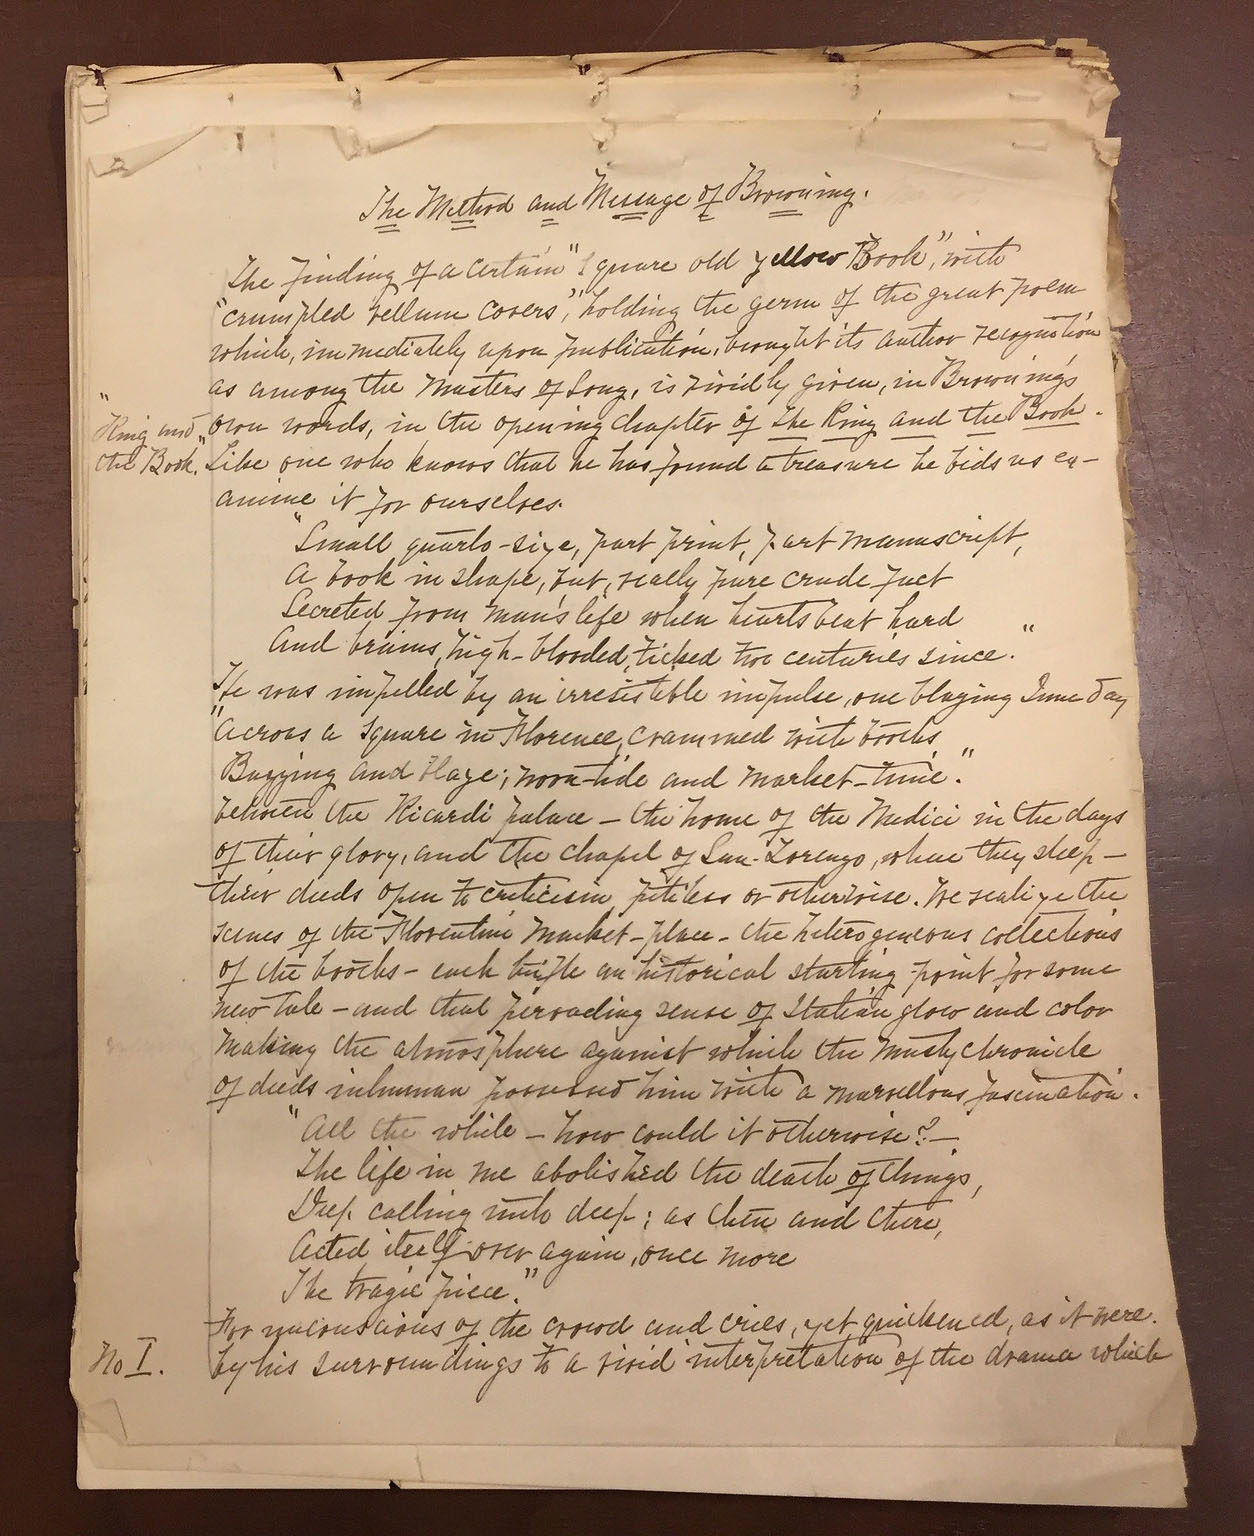 The Method and Message of Browning.
The finding of a certain "square old yellow Book", with
"crumpled vellum covers", holding the germ of the great poem
which, immediately upon publication, brought its author recognition
as among the Masters of Song, is vividly given, in Browning's
"Ring and the Book."
own words, in the opening chapter of The Ring and the Book.
Like one who knows that he has found a treasure he bids us ex-
amine it for ourselves.
"Small quarto-size, part print, part manuscript,
A book in shape, but, really pure crude fact
Secreted from man's life when hearts beat hard
And brains, high-blooded, ticked two centuries since."
He was impelled by an irresistible impulse, one blazing June day
"Across a square in Florence, crammed with booths,
Buzzing and blaze; noon-tide and market-time".
between the Ricardi palace – the home of the Medici in the days
of their glory, and the chapel of San-Lorenzo, where they sleep –
their deeds open to criticism pitiless or otherwise. We realize the
scenes of the Florentine market-place – the heterogeneous collections
of the booths – each trifle an historical starting point for some
new tale – and that pervading sense of Italian glow and color
making the atmosphere against which the musty chronicle
of deeds inhuman possessed him with a marvellous fascination.
"All the while – how could it otherwise? –
The life in me abolished the death of things,
Deep calling unto deep; as then and there,
Acted itself over again, once more
The tragic piece."
For unconscious of the crowd and cries, yet quickened, as it were.
No I.
by his surroundings to a vivid interpretation of the drama which